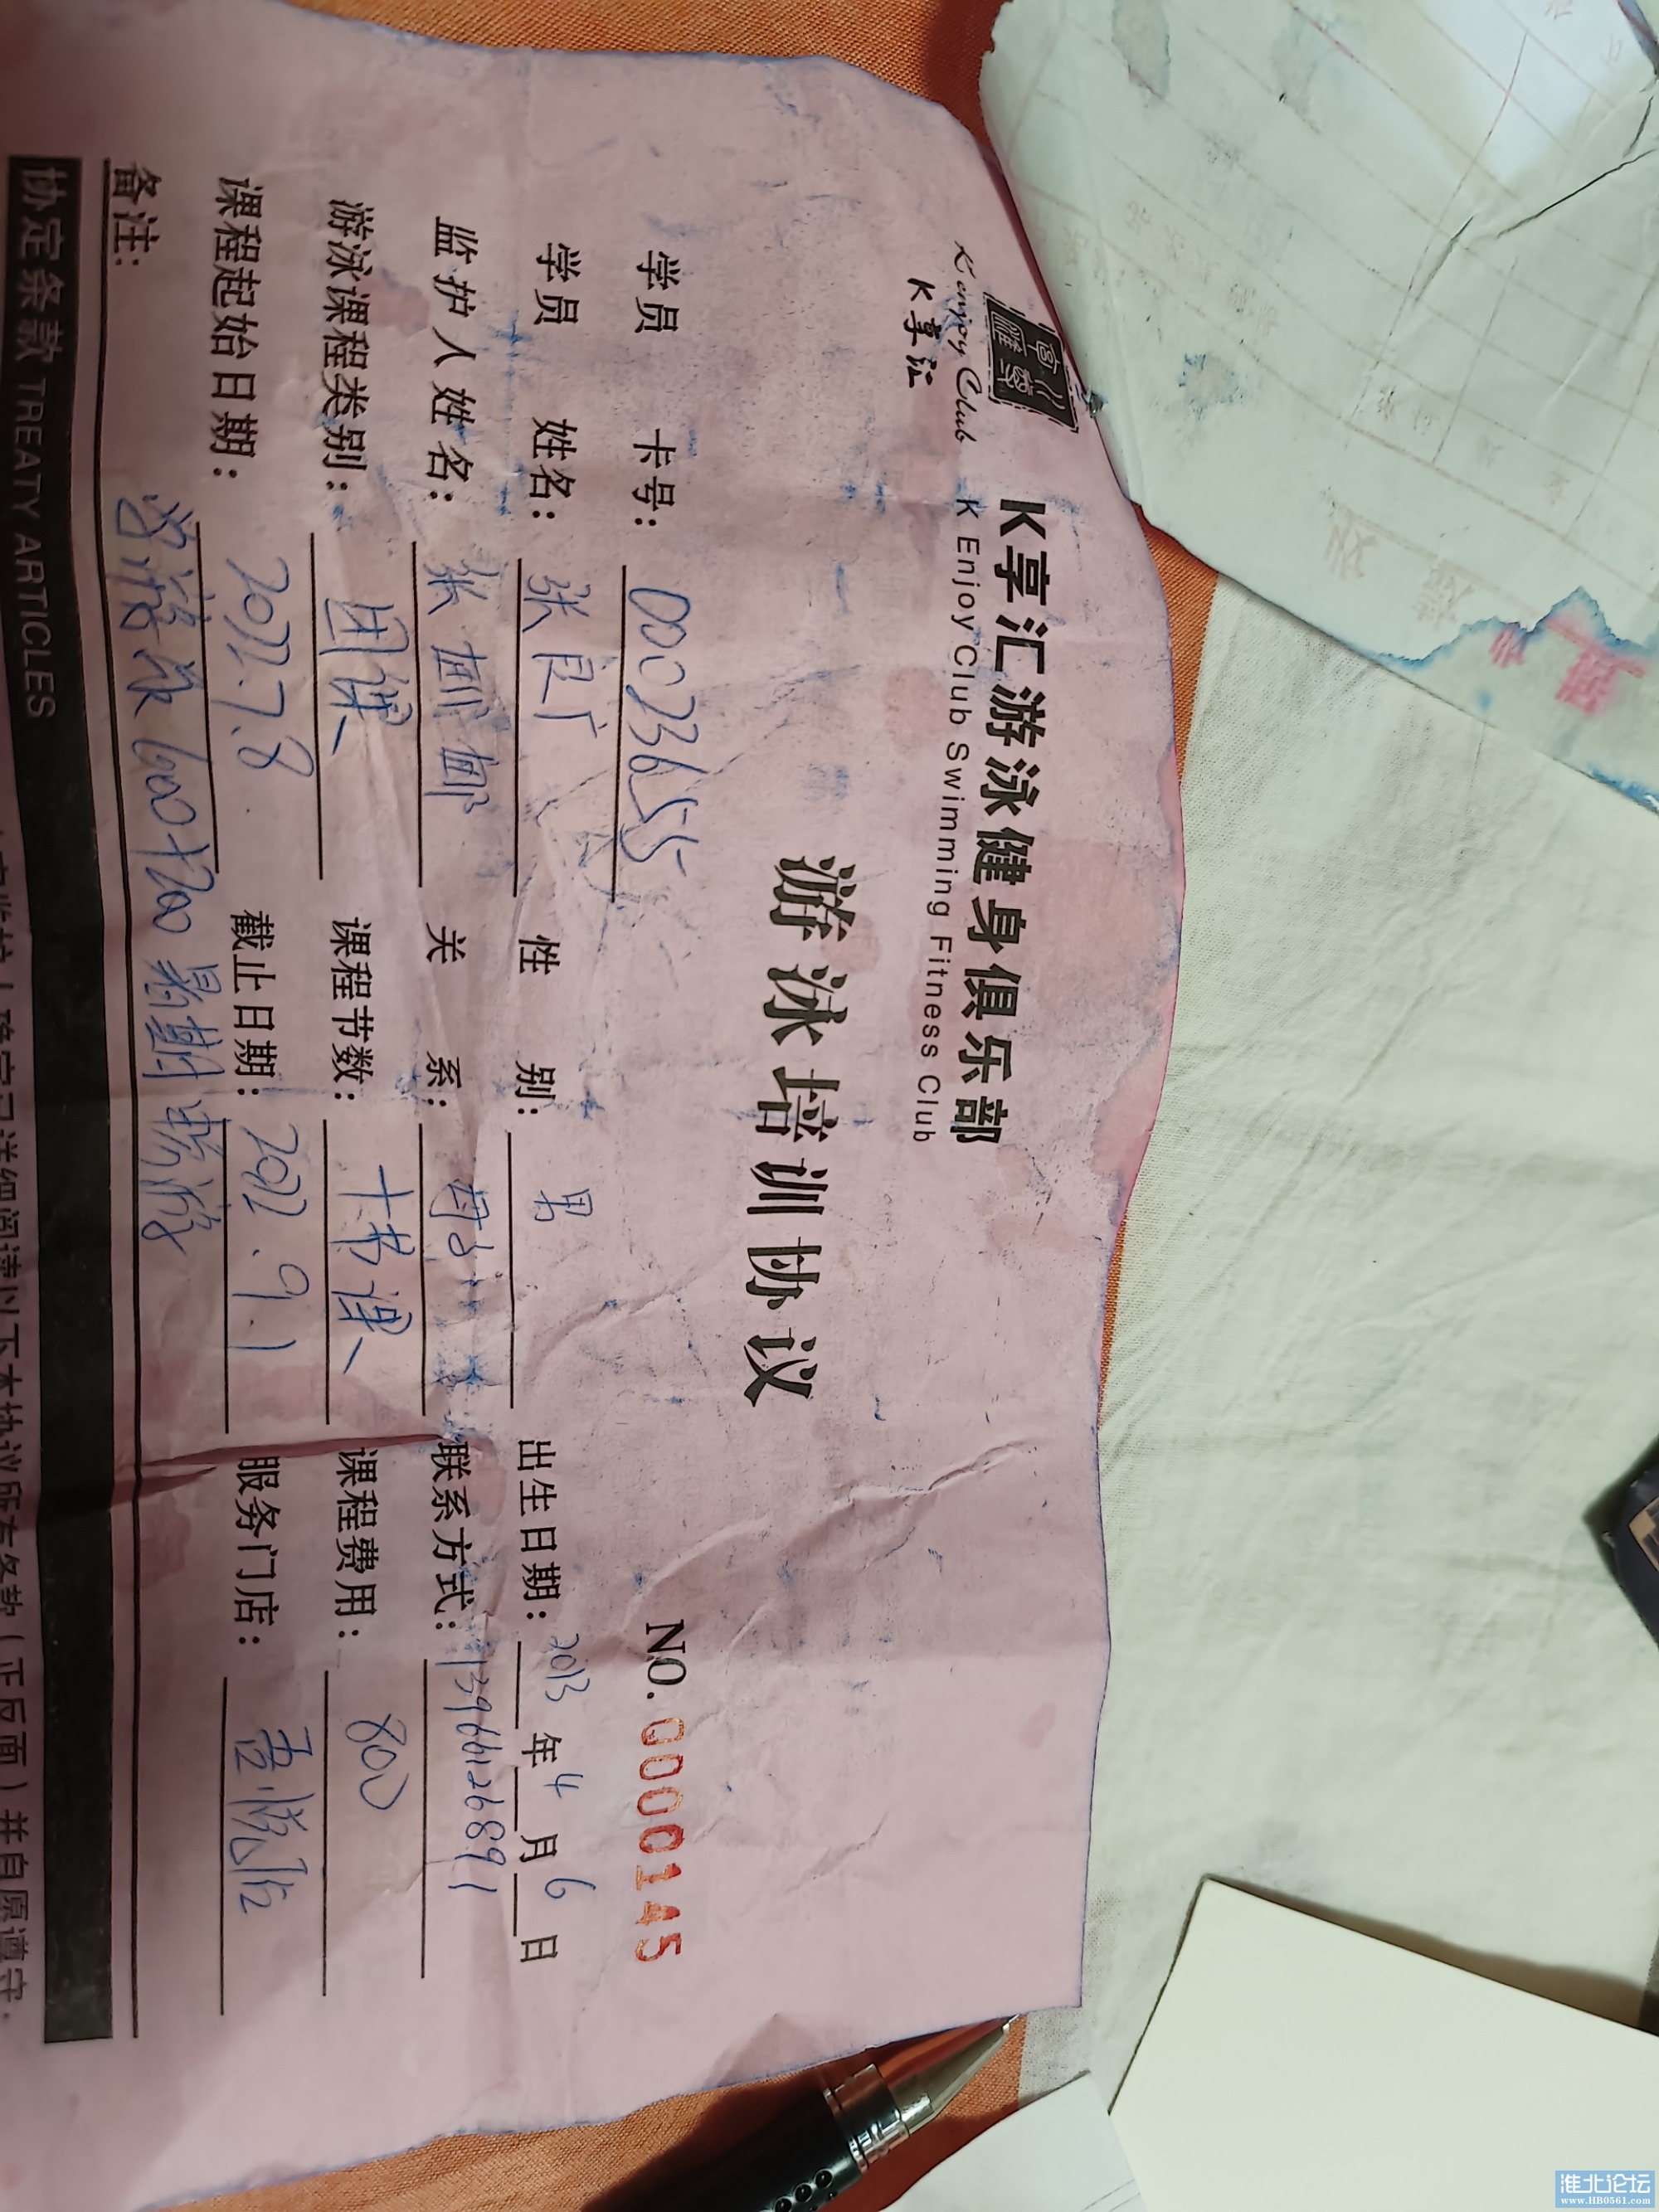 K enjoy Club
K享汇
K享汇游泳健身俱乐部
K Enjoy Club Swimming Fitness Club
游泳培训协议
NO. 0000145
学员 卡号: 00023655
学员 姓名: 张良广 性 别: 男 出生日期: 2013 年 4 月 6 日
监护人姓名: 张 关 系: 母子 联系方式: 13966126891
游泳课程类别: 团课 课程节数: 十节课 课程费用: 800
课程起始日期: 2022.7.8 截止日期: 2022.9.1 服务门店: 吾悦店
备注: 600+200 暑期
协定条款 TREATY ARTICLES
确定已详细阅读以下本协议所有条款(正反面)并自愿遵守.
淮北论坛
www.HB0561.com